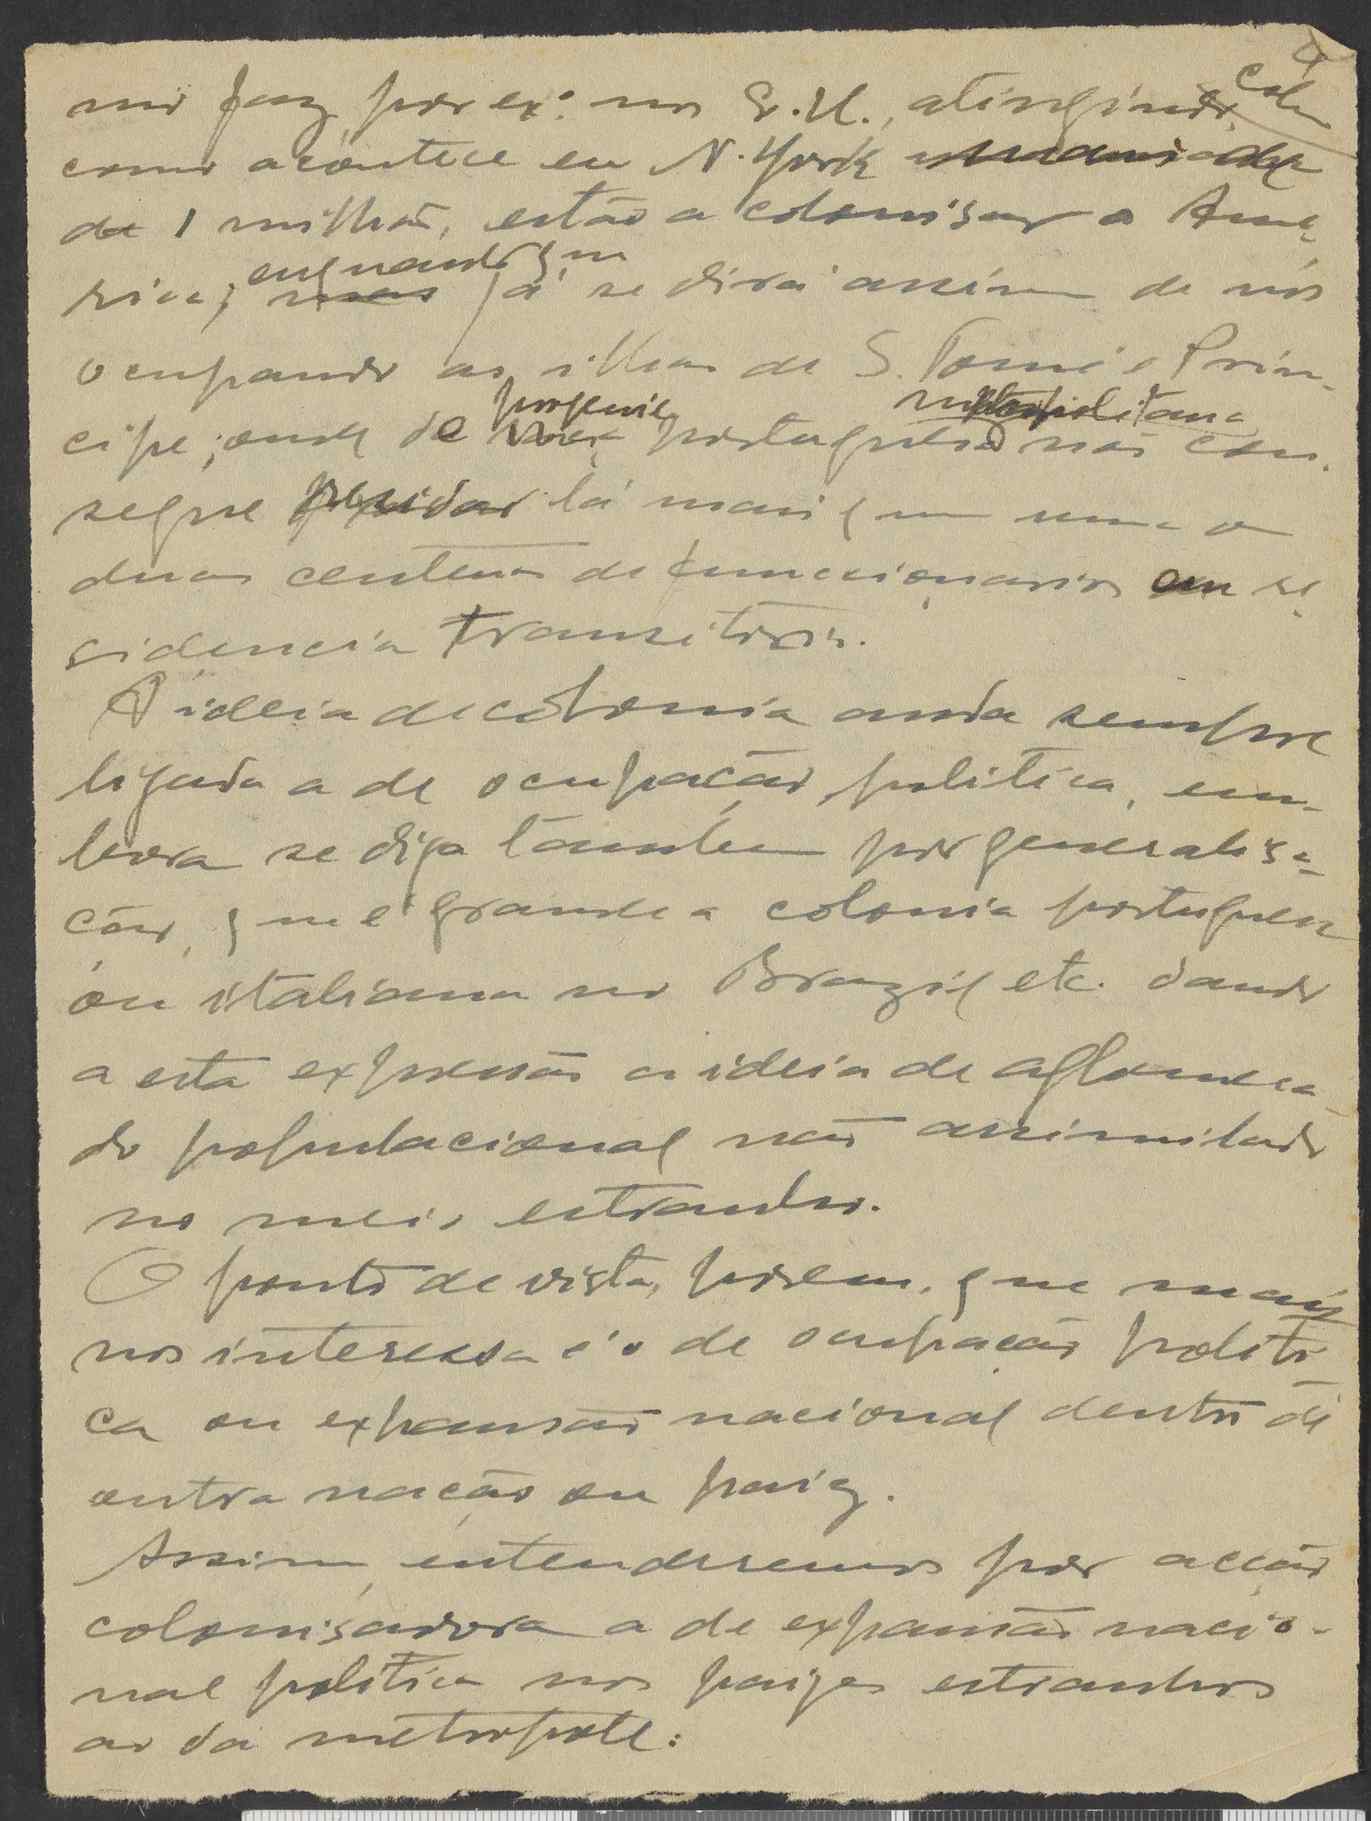 4
mo faz, por exº. nos E. U., atingindo
como acontece em N. York
de 1 milhão, estão a colonisar a Ame-
rica; enquanto que mas já se dirá assim de nós
ocupando as ilhas de S. Tomé e Prin-
cipe; onde de progenie portuguesa metropolitana não con-
segue residar lá mais que uma ou
duas centenas de funccionarios em re-
sidencia transitoria.
A ideia de colonia anda sempre
ligada a de ocupação politica, em-
bora se diga tambem por generalisa-
ção, que é grande a colonia portuguesa
ou italiana no Brazil etc. dando
a esta expressão a ideia de aglomera-
do populacional não assimilado
no meio estranho.
O ponto de vista, porem, que mais
nos interessa é o de ocupação politi-
ca ou expansão nacional dentro de
outra nação ou paiz.
Assim, entenderemos por acção
colonisadora a de expansão nacio-
nal politica nos paizes estranhos
ao da metropole: